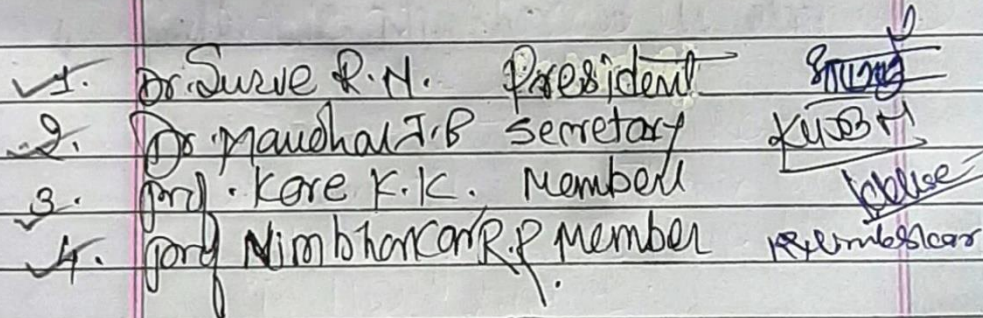 1. Dr. Surve R.N. President
2. Dr. Maudhal J.B Secretary
3. Prof. Kore K.K. Member
4. Prof Nimbhorcar R.P Member